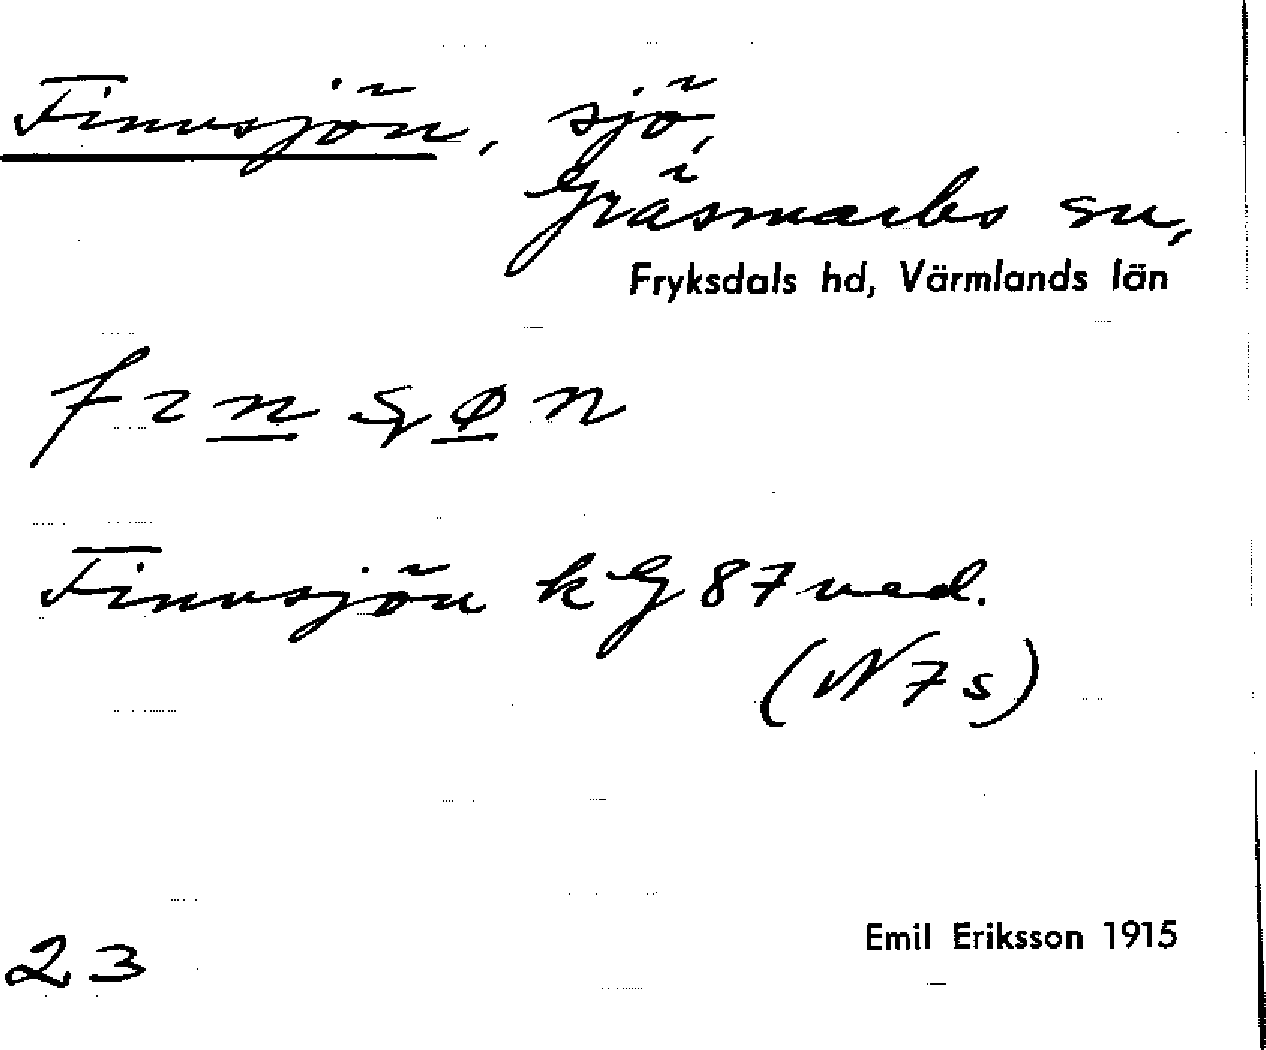 Finnsjön, sjö,
Gräsmarks sn,
Fryksdals hd, Värmlands län
Finnsjön kG 87 ned.
(N7s)
Emil Eriksson 1915
23